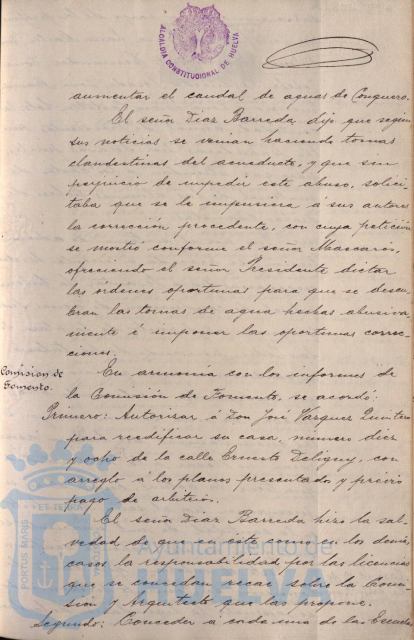 ALCALDIA CONSTITUCIONAL DE HUELVA
aumentar el caudal de aguas de Conquero.
El señor Diaz Barreda dijo que según
sus noticias se venian haciendo tomas
clandestinas del acueducto, y que sin
perjuicio de impedir este abuso, solici
taba que se le impusiera á sus autores
la corrección procedente, con cuya petición
se mostró conforme el señor Mascarós,
ofreciendo el señor Presidente dictar
las órdenes oportunas para que se descu
bran las tomas de agua hechas abusiva
mente é imponer las oportunas correc-
ciones.
Comision de
Fomento.
En armonía con los informes de
la Comisión de Fomento, se acordó:
Primero: Autorizar á Don José Vazquez Quintero
para reedificar su casa, numero diez
y ocho de la calle Ernesto Deligny, con
arreglo á los planos presentados y prévio
pago de arbitrios.
El señor Diaz Barreda hizo la sal-
vedad de que en este como en los demás
casos la responsabilidad por las licencias
que se concedan recae sobre la Comi
sión y Arquitecto que las propone.
Segundo: Conceder á cada una de las Escuelas
PORTUS MARIS
ET TERRÆ
Ayuntamiento de
HUELVA